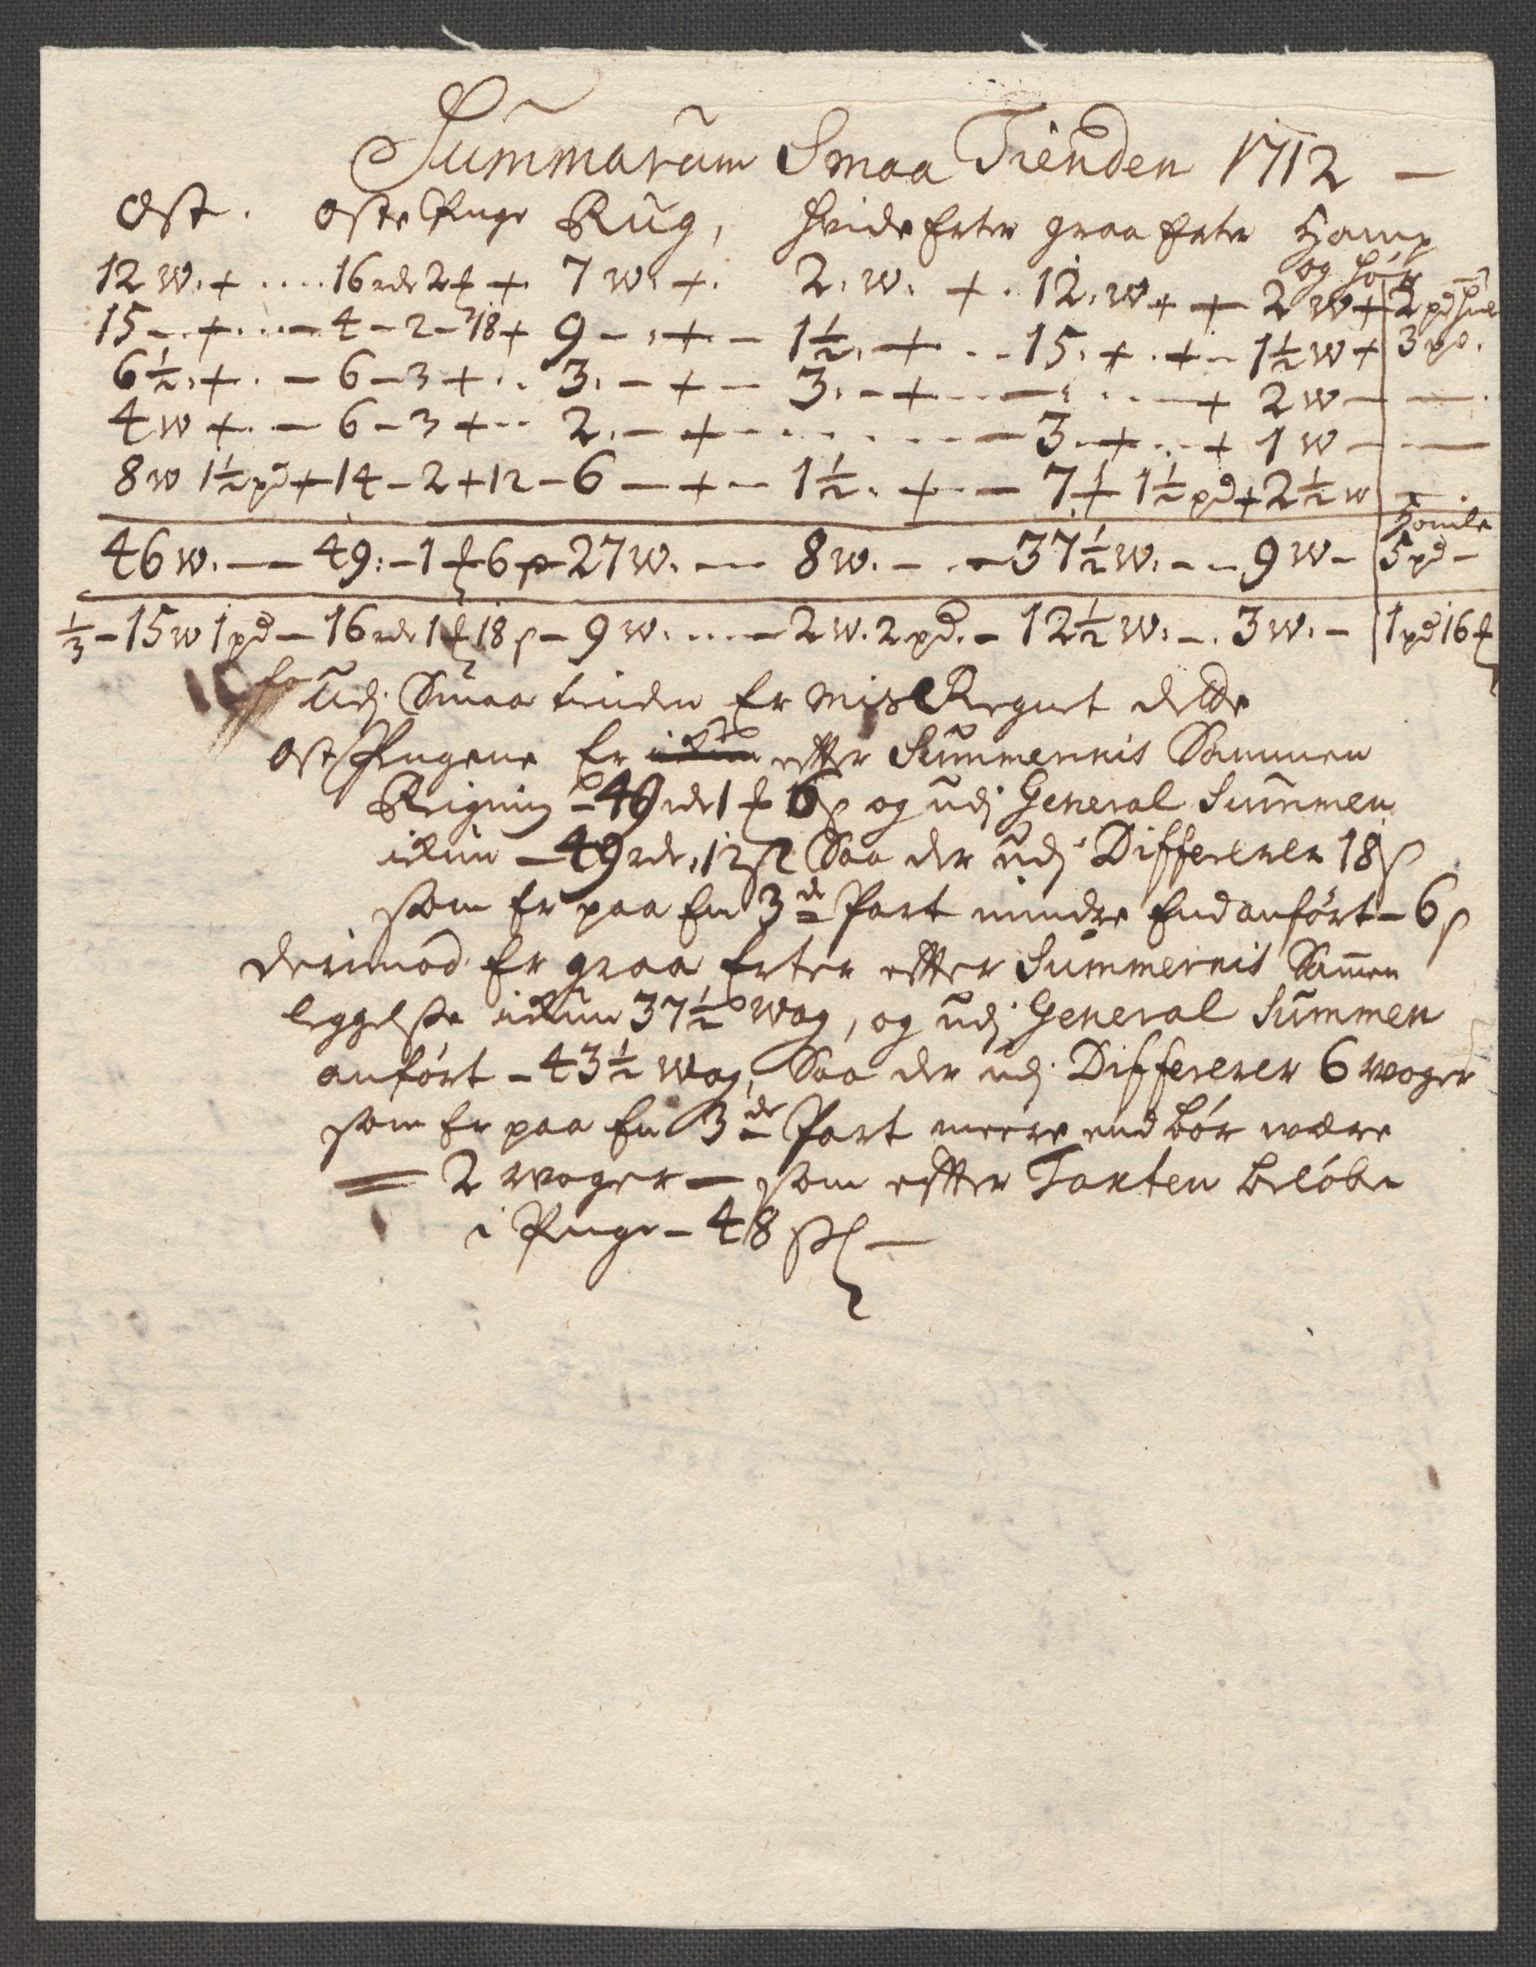 Summarum Smaa Tienden 1712 —
Ost. Oste Penge Rug, Hvide Erter graa Erter Hamp
og Hör
12 W. + .... 16 rdr 2 + 7 W. +. 2. W. + . 12. W + + 2 W + 2 pd
15 — . + . — 4 — 2 — 18 + 9 — . + — 1½. + . . — 15. + . + — 1½ W + 3 pd.
6½. + . — 6 — 3 + .. 3. — + — 3. — + — — + 2 W — —
4 W + . — 6 — 3 + .. 2. — + — — 3. + . . + 1 W — —
8 W 1½ pd + 14 — 2 + 12 — 6 — + — 1½. + . — 7 + 1½ pd + 2½ W —
46 W. — 49: — 1 6 27 W. — 8 W. — . — 37½ W. — 9 W — 5 pd —
⅓ — 15 W 1 pd — 16 rdr 1 18 s — 9 W. ... — 2 W. 2 pd. — 12½ W. — . 3 W. — 1 pd 16
Udj Smaa tienden Er mis Regnet dette
Ost Pengene Er efter Summernis Sammen
Reigning — 49 rdr 1 6 s og udj General Summen
ikun — 49 rdr. 12 s Saa der udj Differerer 18 s
som Er paa En 3de Part mindre End anfört — 6 s
derimod Er graa Erter efter Summernis Samen
leggelse ikun 37½ Wog, og udj General Summen
anfört — 43½ Wog, Saa der udj Differerer 6 Woger
som Er paa En 3de Part meere end bör være
= 2 Woger — som efter Taxten belöber
i Penge — 48 s —